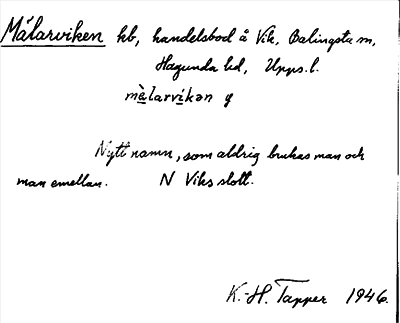 Mälarviken hb, handelsbod å Vik, Balingsta sn,
Hagunda hd, Upps. l.
mèlarvikən y
Nytt namn, som aldrig brukas man och
man emellan. N Viks slott.
K.-H. Tapper 1946.